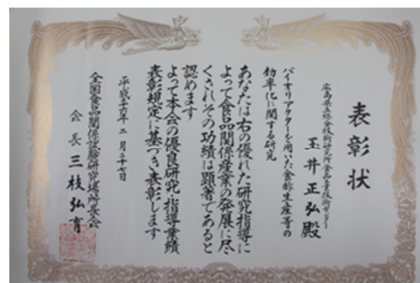 表彰状
広島県立総合技術研究所食品工業技術センター
玉井正弘殿
バイオリアクターを用いた食酢生産等の
効率化に関する研究
あなたは右の優れた研究指導に
よって食品関係産業の発展に尽
くされその功績は顕著であると
認めます
よって本会の優良研究・指導業績
表彰規定に基づき表彰します
平成二十六年二月二十七日
全国食品関係試験研究場所長会
会長三枝弘育